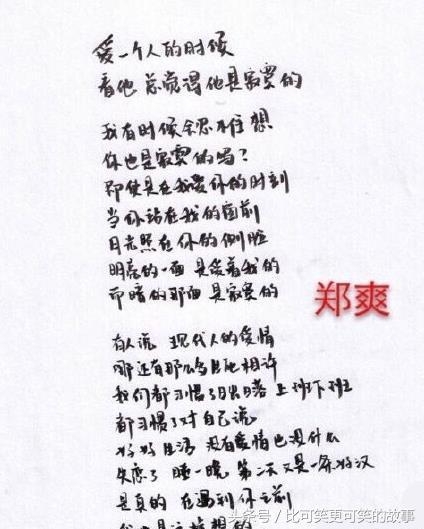 爱一个人的时候
看他总觉得他是寂寞的
我有时候会忍不住想
你也是寂寞的吗？
即使是在我爱你的时刻
当你站在我的面前
日光照在你的侧脸
明亮的一面 是爱着我的
而暗的那面 是寂寞的
郑爽
有人说 现代人的爱情
哪还有那么多生死相许
我们都习惯了日出日落 上班下班
都习惯了对自己说
好好生活 没有爱情也没什么
失恋了 睡一晚 第二天又是一条好汉
是真的 在遇到你之前
我也是这样想的
头条号 / 比可笑更可笑的故事